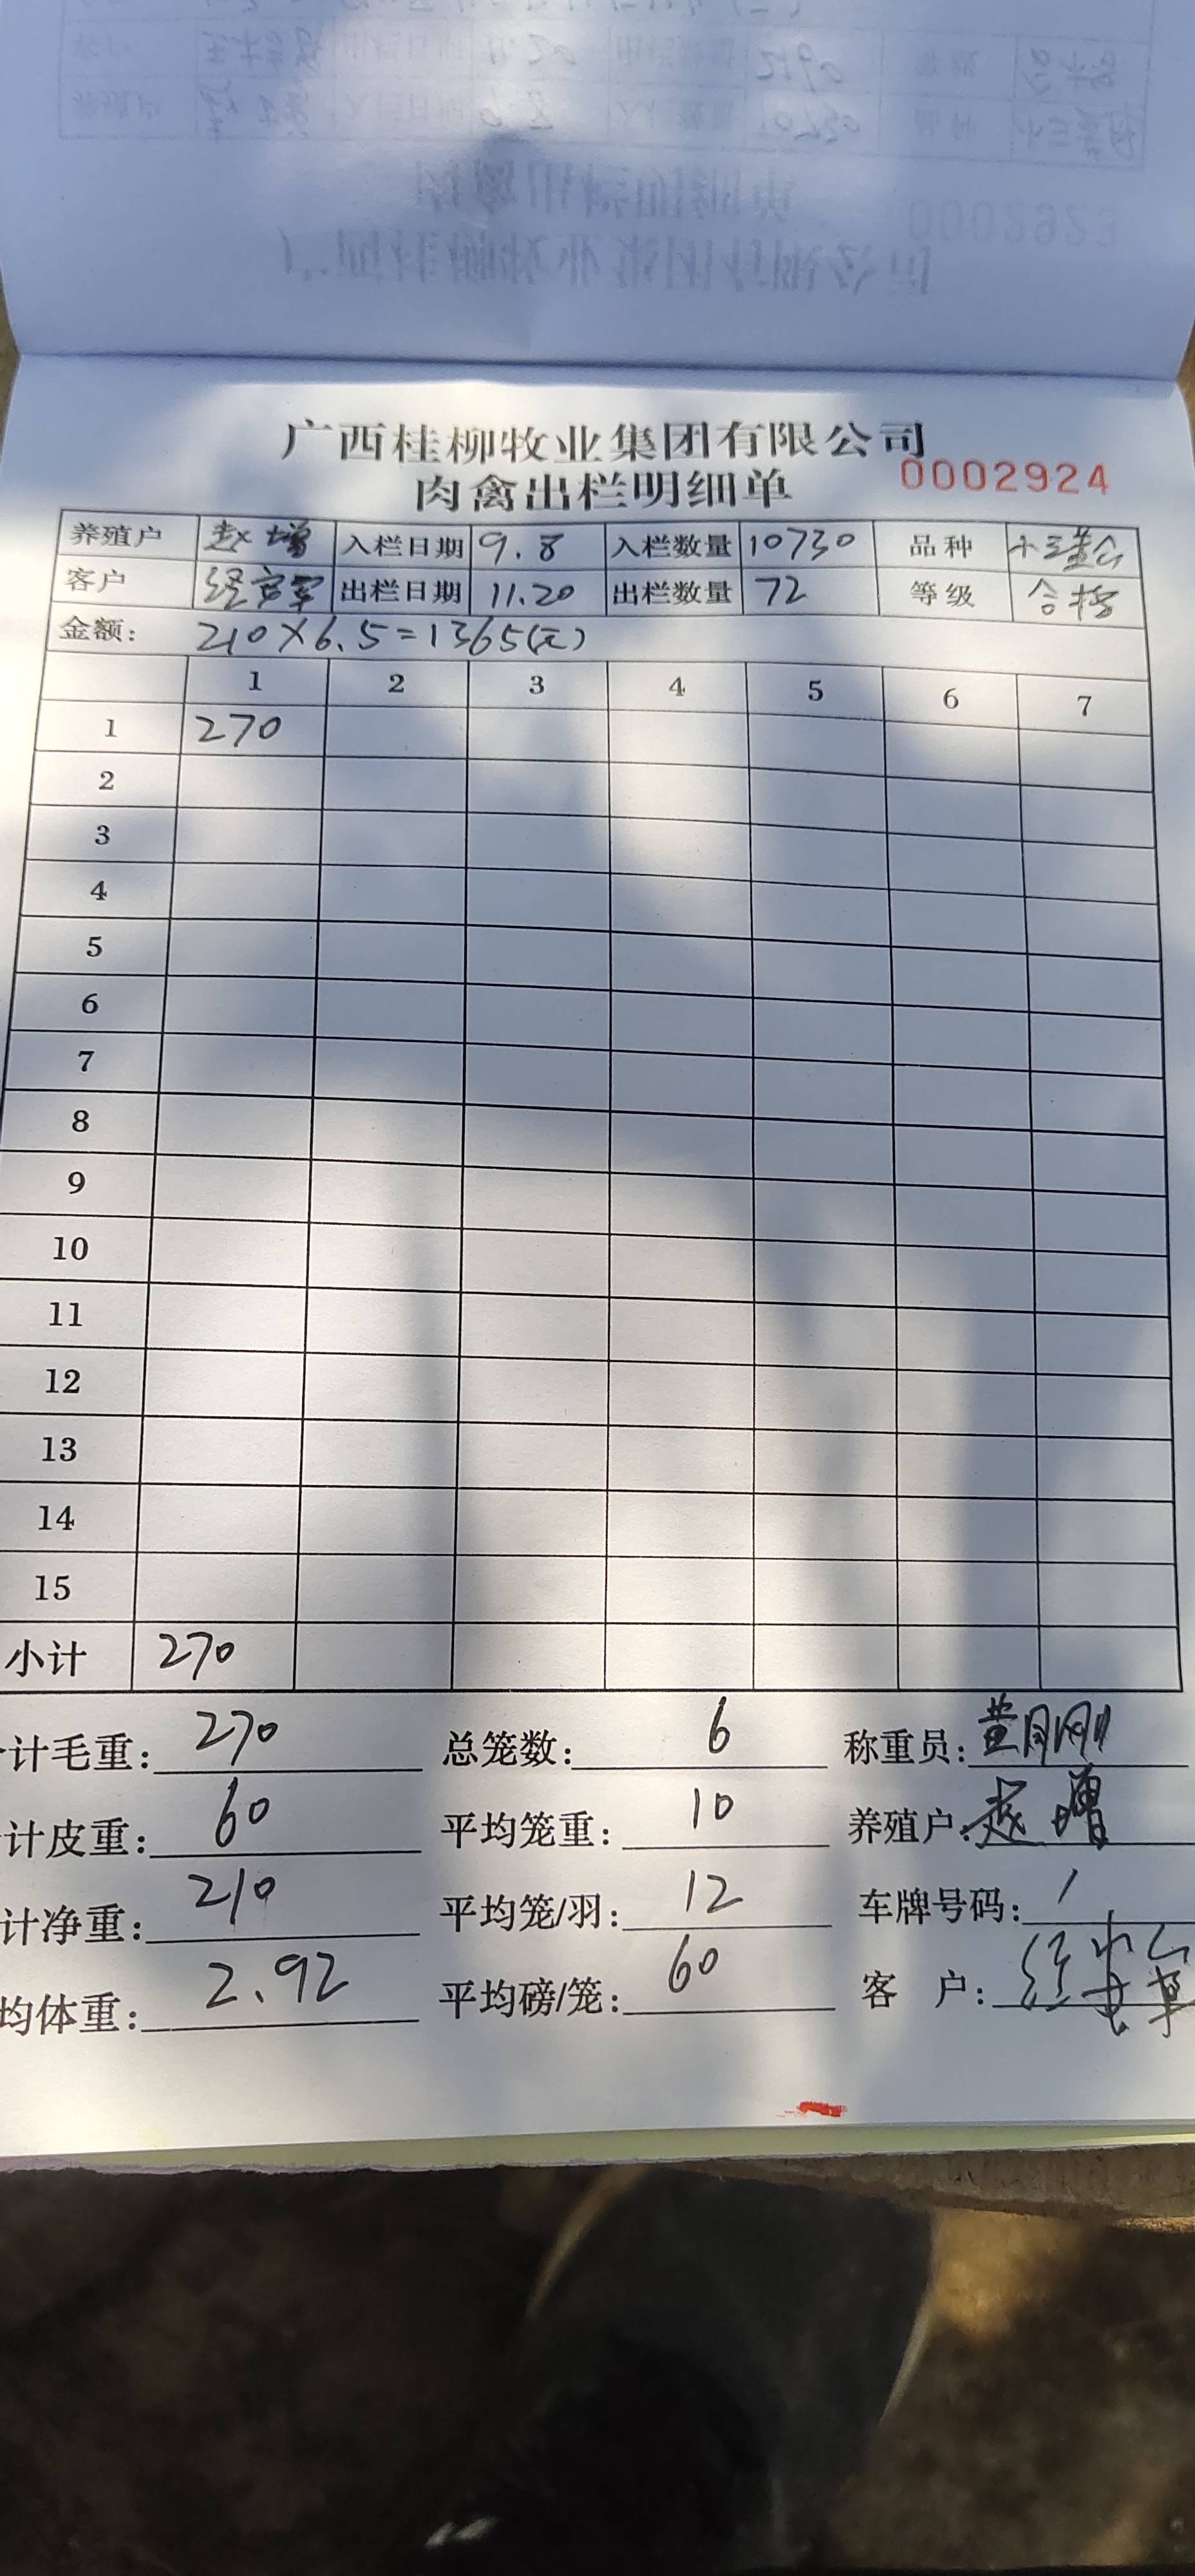 广西桂柳牧业集团有限公司
肉禽出栏明细单 0002924
养殖户 赵增 入栏日期 9.8 入栏数量 10730 品种
客户 出栏日期 11.20 出栏数量 72 等级 合格
金额: 210×6.5=1365(元)
1 2 3 4 5 6 7
1 270
2
3
4
5
6
7
8
9
10
11
12
13
14
15
小计 270
计毛重: 270 总笼数: 6 称重员: 黄刚
计皮重: 60 平均笼重: 10 养殖户: 赵增
计净重: 210 平均笼/羽: 12 车牌号码: /
均体重: 2.92 平均磅/笼: 60 客 户: